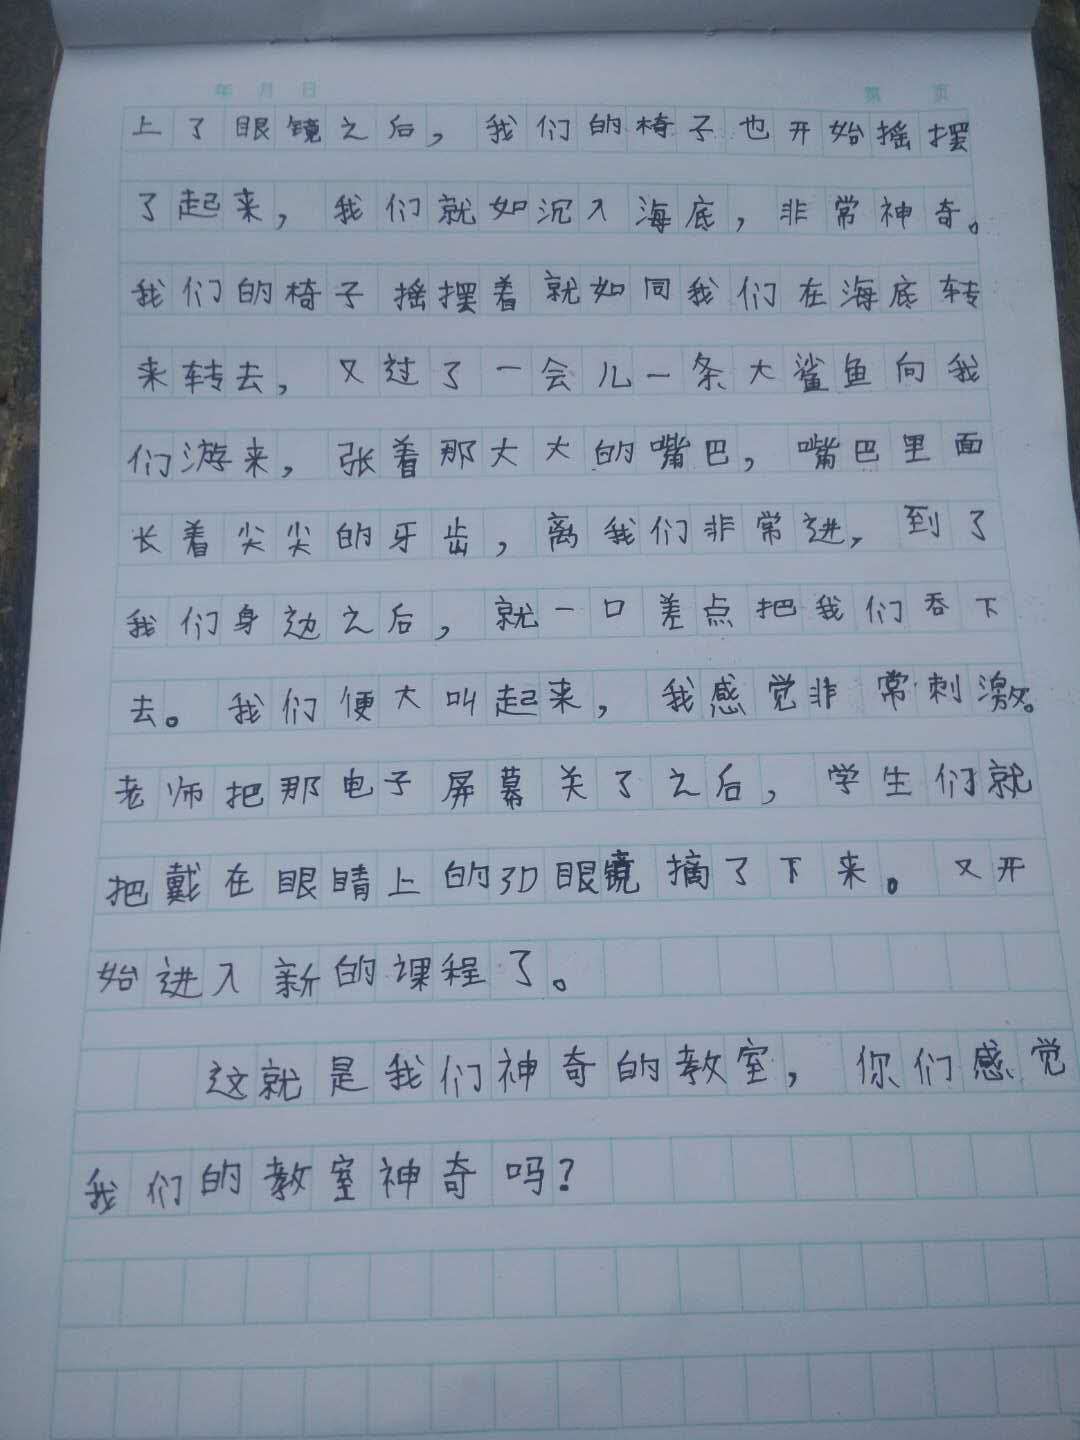 年 月 日 第 页
上了眼镜之后，我们的椅子也开始摇摆
了起来，我们就如沉入海底，非常神奇。
我们的椅子摇摆着就如同我们在海底转
来转去，又过了一会儿一条大鲨鱼向我
们游来，张着那大大的嘴巴，嘴巴里面
长着尖尖的牙齿，离我们非常进，到了
我们身边之后，就一口差点把我们吞下
去。我们便大叫起来，我感觉非常刺激。
老师把那电子屏幕关了之后，学生们就
把戴在眼睛上的3D眼镜摘了下来。又开
始进入新的课程了。
这就是我们神奇的教室，你们感觉
我们的教室神奇吗？